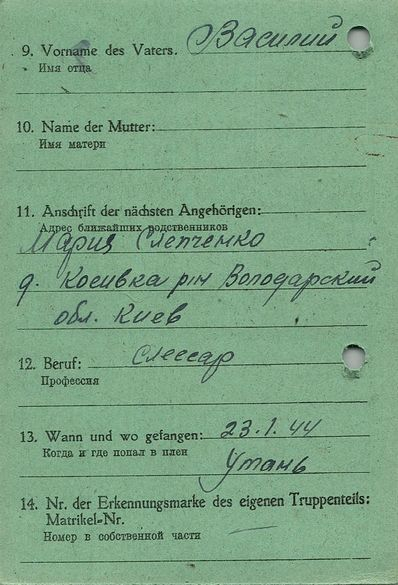 9. Vorname des Vaters. Василий
Имя отца
10. Name der Mutter:
Имя матери
11. Anschrift der nächsten Angehörigen:
Адрес ближайших родственников
Мария Слепченко
д. Косивка р/н Володарский
обл. Киев
12. Beruf: слессар
Профессия
13. Wann und wo gefangen: 23.1.44
Когда и где попал в плен
Умань
14. Nr. der Erkennungsmarke des eigenen Truppenteils:
Matrikel-Nr.
Номер в собственной части —